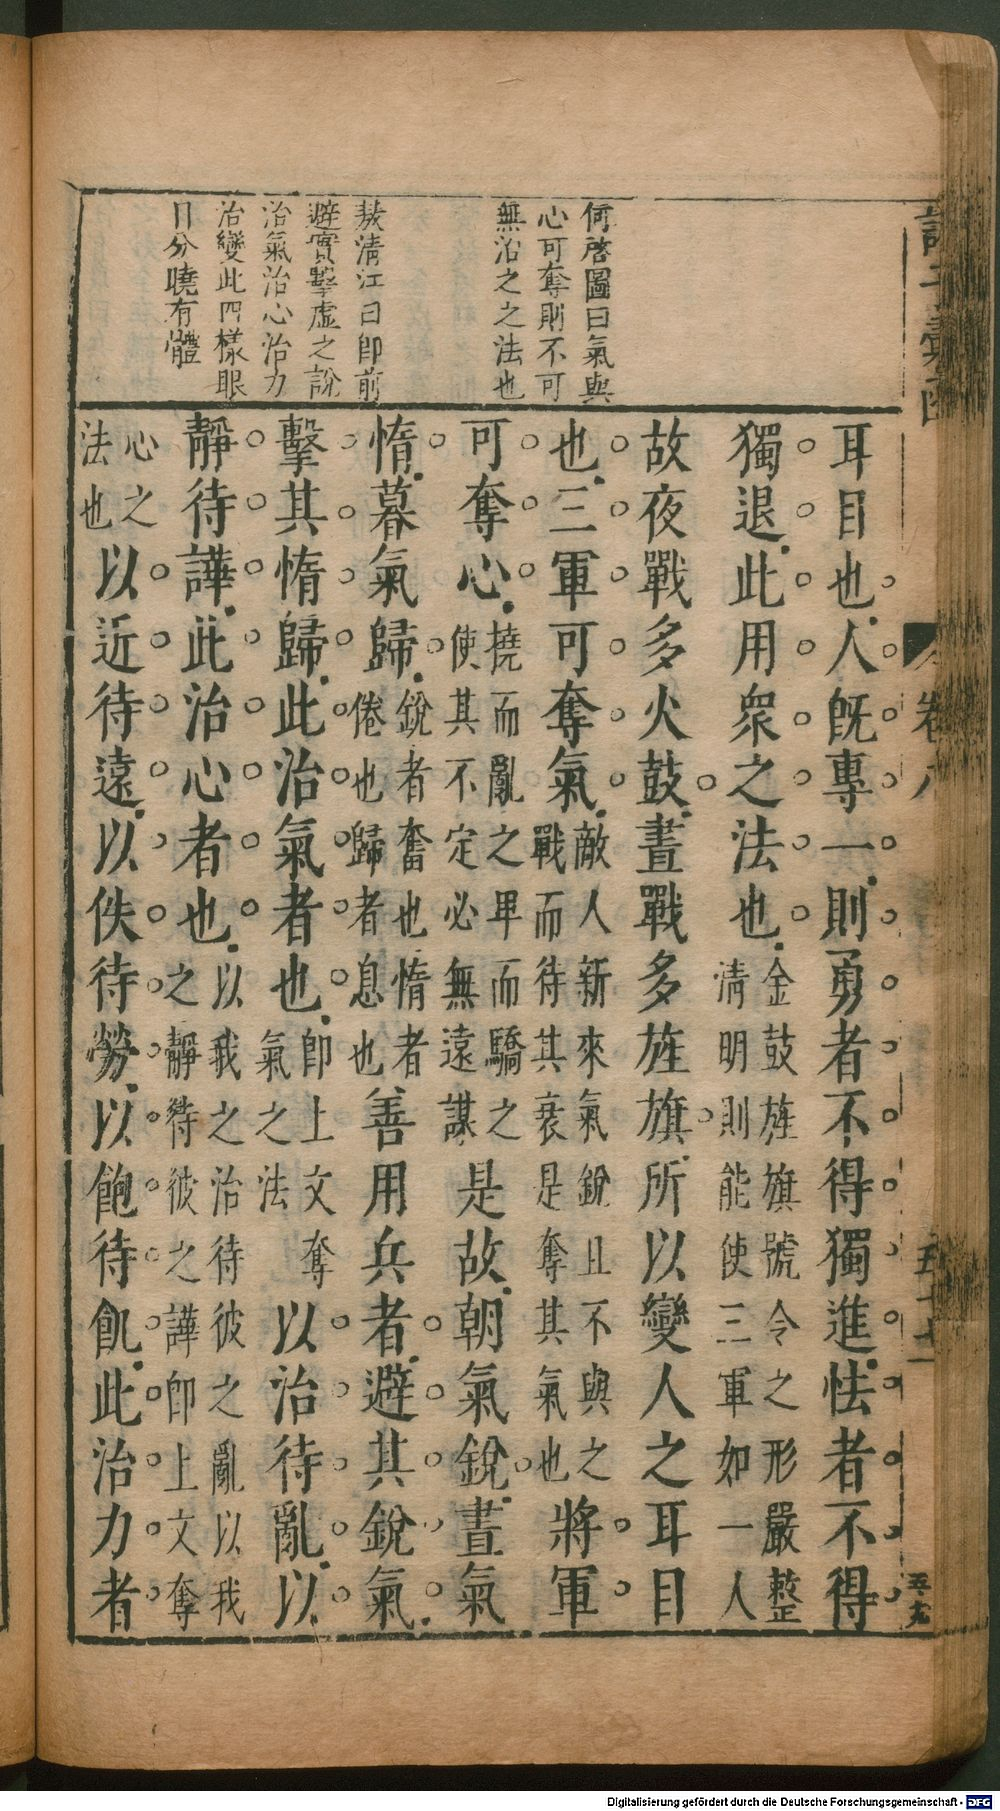 何啓圖曰氣與
心可奪則不可
無治之之法也
敖清江曰即前
避實擊虛之說
治氣治心治力
治變此四樣眼
目分曉有體
耳目也人旣專一則勇者不得獨進怯者不得
獨退此用衆之法也金鼓旌旗號令之形嚴整清明則能使三軍如一人
故夜戰多火鼓晝戰多旌旗所以變人之耳目
也三軍可奪氣敵人新來氣銳且不與之戰而待其衰是奪其氣也將軍
可奪心撓而亂之卑而驕之使其不定必無遠謀是故朝氣銳晝氣
惰暮氣歸銳者奮也惰者倦也歸者息也善用兵者避其銳氣
擊其惰歸此治氣者也即上文奪氣之法以治待亂以
靜待譁此治心者也以我之治待彼之亂以我之靜待彼之譁即上文奪
心之法也以近待遠以佚待勞以飽待飢此治力者
卷八
五十七
Digitalisierung gefördert durch die Deutsche Forschungsgemeinschaft - DFG